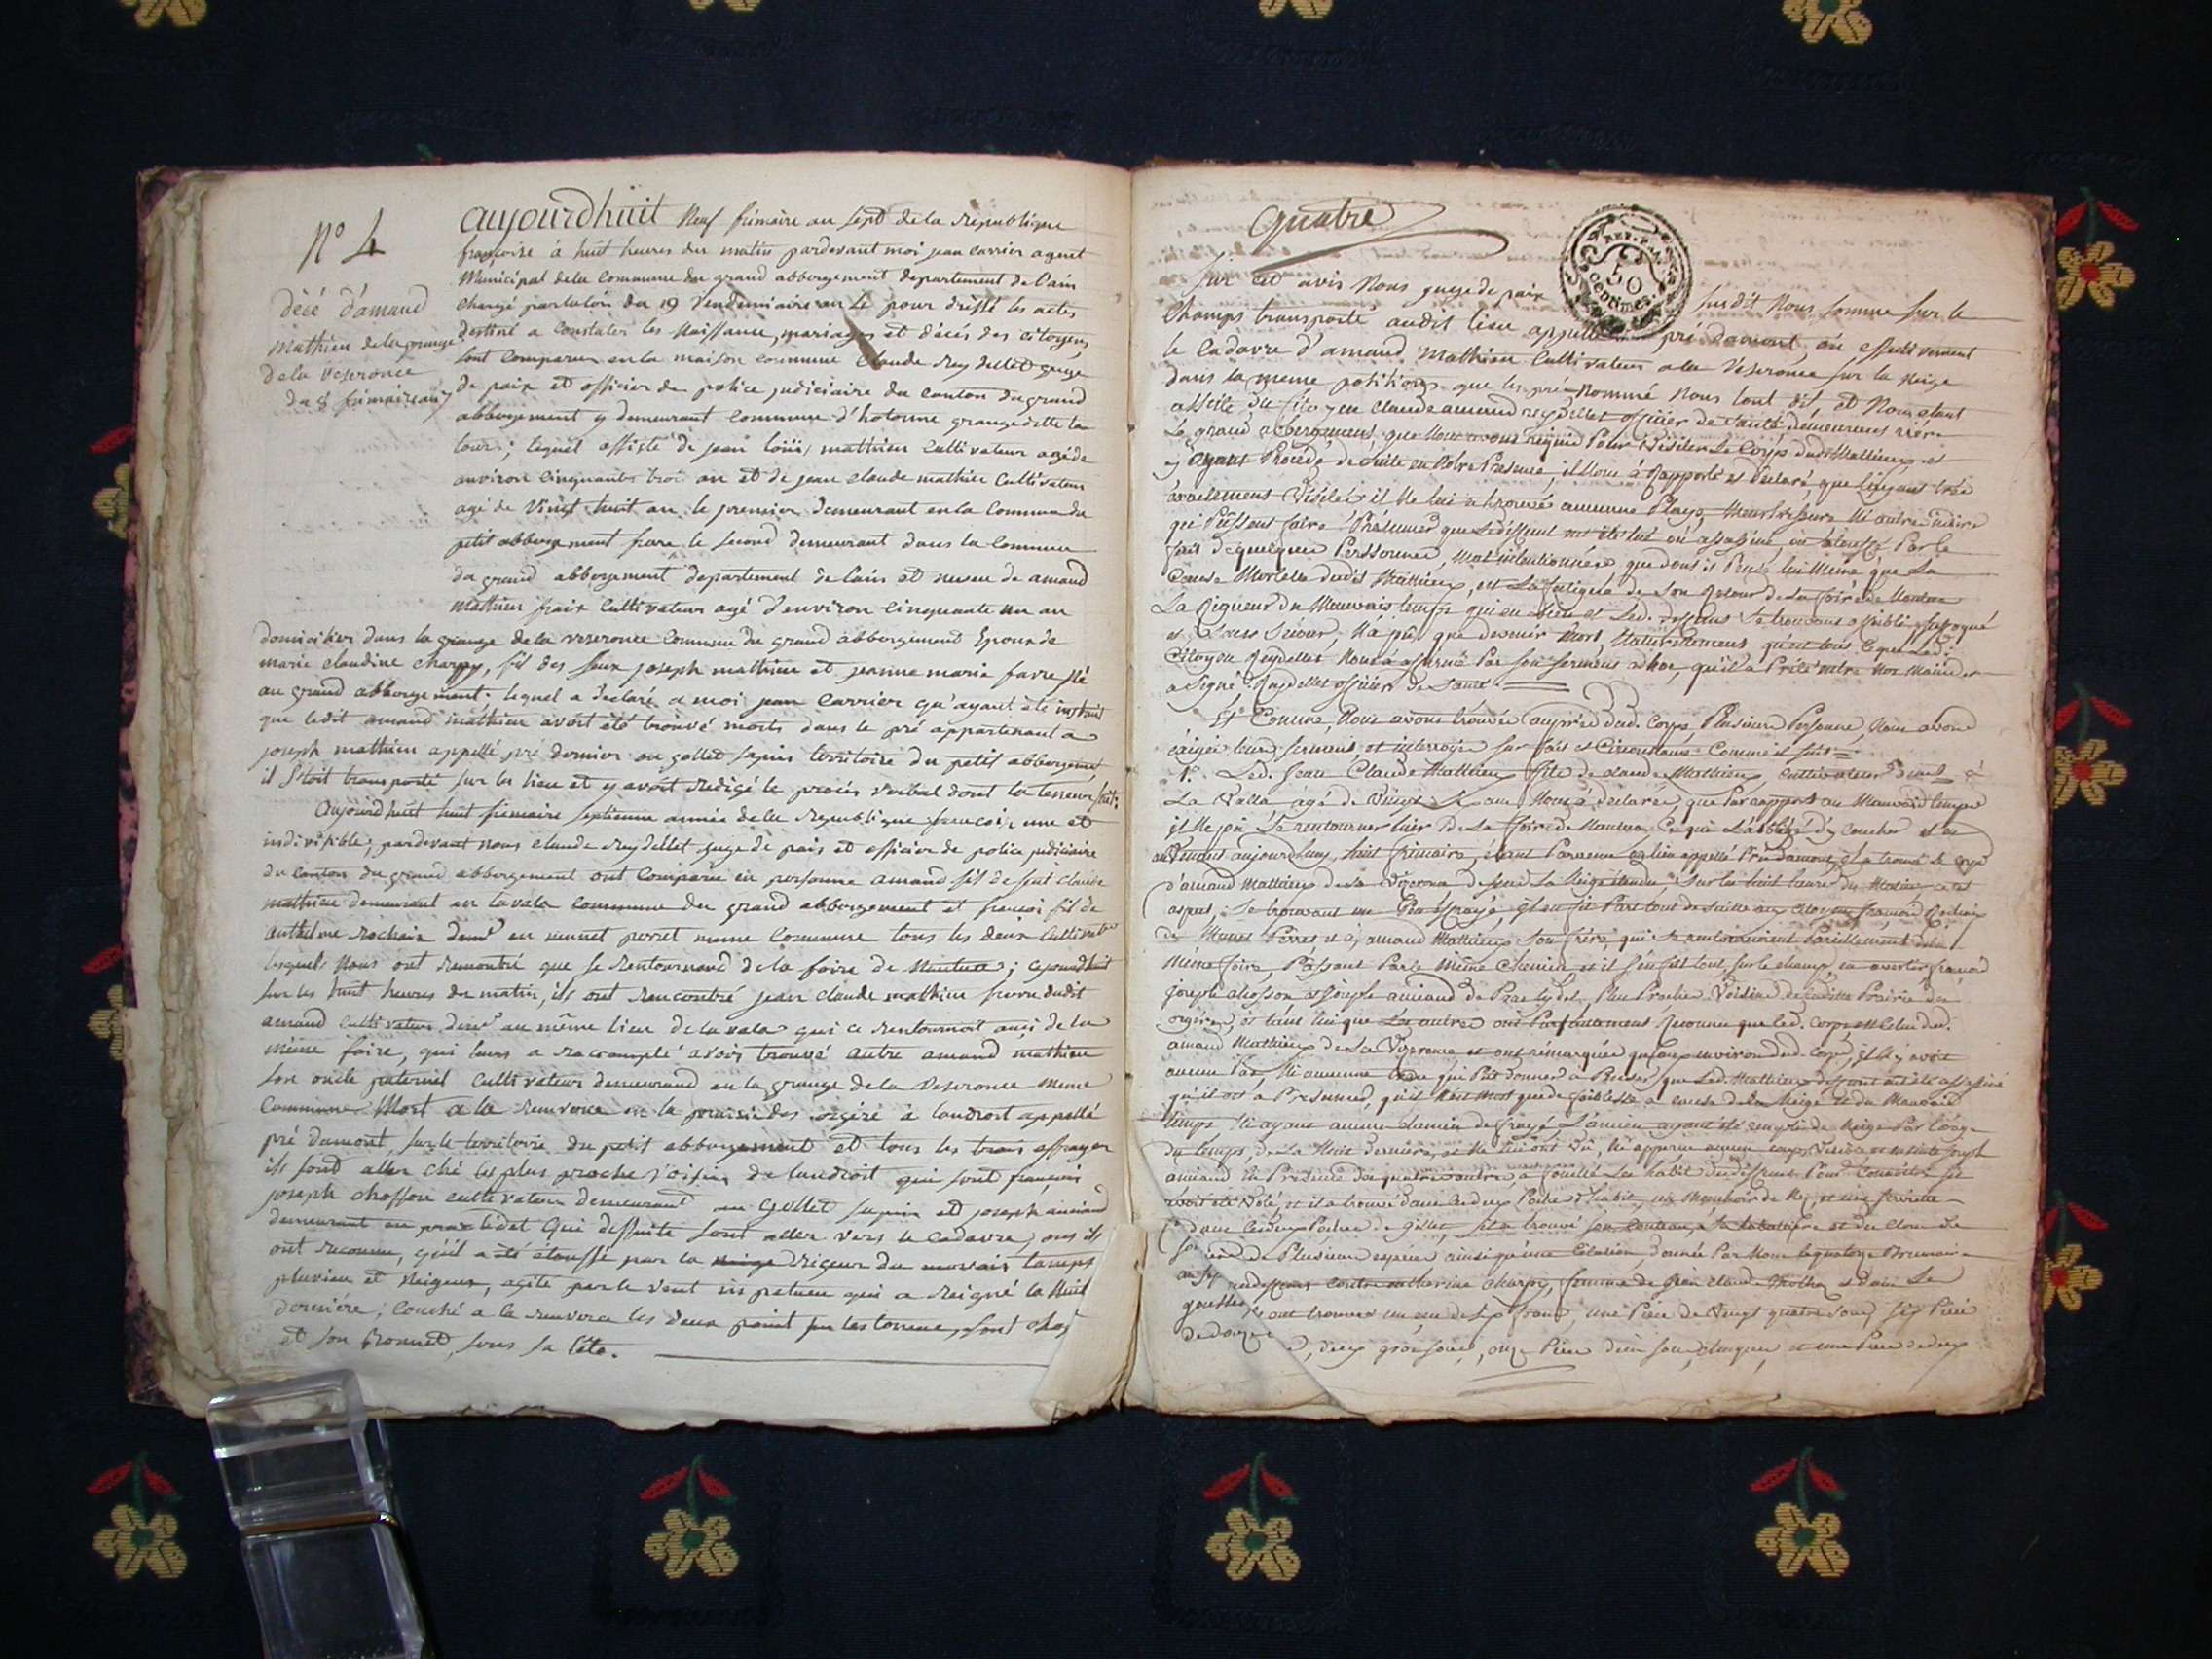 N° 4
décé d'amand
mathieu de la grange
de la veseronce
du 8 frimaire an 7
aujourdhuit neuf frimaire an sept de la republique
françoise à huit heures du matin pardevant moi jean carrier agent
municipal de la commune du grand abbergement departement de l'ain
chargé par la loi du 19 vendemiaire an 4 pour dréssé les actes
destiné a constater les naissance, mariages et décés des citoyens
sont comparu en la maison commune Claude Reydellet juge
de paix et officier de police judiciaire du canton du grand
abbergement y demeurant commune d'hotonne grange ditte la
tour; lequel assisté de jean loüis mathieu cultivateur agé de
environ cinquante troi an et de jean claude mathieu cultivateur
agé de vingt huit an le premier demeurant en la commune du
petit abbergement frere le second demeurant dans la commune
du grand abbergement departement de l'ain et neveu de amand
mathieu cultivateur agé d'environ cinquante un an
domicilier dans la grange de la veseronce commune du grand abbergement Epoux de
marie claudine charpy, fil des feux joseph mathieu et jeanne marie favre né
au grand abbergement. lequel a declaré a moi jean carrier qu'ayant été instruit
que ledit amand mathieu avoit été trouvé morts dans le pré appartenant a
joseph mathieu appellé pré dernier au gollet sapin territoire du petit abbergement
il s'etoit transporté sur les lieu et y avoit redigé le procés verbal dont la teneur suit:
aujourdhuit huit frimaire septieme année de la republique francoise une et
indivisible; pardevant nous claude reydellet juge de paix et officier de police judiciaire
du canton du grand abbergement ont comparu en personne amand fil de feut claude
mathieu demeurant en lavala commune du grand abbergement et francoi fil de
anthelme rochaix demt en perret meme commune tous les deux cultivateur
lesquels nous ont remontré que se rentournant de la foire de nantua; cejourdhuit
sur les huit heures du matin, ils ont rencontré jean claude mathieu frere dudit
amand cultivateur demt au même lieu de lavala qui ce rentournoit auci de la
même foire, qui leurs a raccompté avoir trouvé autre amand mathieu
son oncle paternel cultivateur demeurand en la grange de la veseronce meme
commune. Mort a la renverce en la prairie des orgiere à landroit appellé
pré damont, sur le territoire du petit abbergement et tous les trois effrayer
ils sont aller ché les plus proche voisin de landroit qui sont françois
joseph chosson cultivateur demeurant au Gollet sapin et joseph amiand
demeurant en praz lidet qui dessuite sont aller vers le cadavre, ous ils
ont reconnu, qu'il a été etouffé par la rigeur du mauvais tamps
pluvieu et neigeux, agite par le vent inpetueu qui a reigné la nuit
derniére; couché a la renverce les deux sur les
et son bonnet, sous sa tête.
quatre
REP. FRA.
50
centimes.
Sur cet avis nous juge de paix susdit nous somme sur le
champs transporté audit lieu appellé pré damont ou effectivement
le cadavre d'amand mathieu cultivateur a la veseronce sur la neige
dans la meme potition que les pré nommé nous l'ont dit et nous etant
assisté du citoyen claude amand reydellet officier de santé demeurant
Le grand abbergement que nous avons requis Pour visiter Le corps dud. Mathieux et
y ayant Procédé de suite en notre Presence, il nous à Rapporté et declaré, que l'ayant très
exactement Visité, il ne lui a trouvé aucune Playe, Meurtrissure ni autre indice
qui Puissent faire Présumer que Ledéffunt ait été tué ou assassiné, ou blessé Par le
fait de quelques Perssonnes mal intentionnées que dont il Pense lui même que La
Cause Mortelle dudit Mathieux, est La fatigue de son Retour de la foire de Nantua
La Rigueur du Mauvais temps qui
et sans secour, n'a peu que devenir mort, Naturellement
Citoyen Reydellet nous à affirmé Par son serment qu'il a Prêté entre nos Mains et
a signé. Reydellet officier de santé.
Et Comme, Nous avons trouvée auprès dud. Corps Plusieurs Personne, nous avons
exigée leurs serments et interrogé sur fait et Circonstance Comme il suit
1°. Led. Jean Claude Mathieux fils de claude Mathieux, cultivateur demt à
La Valla agé de Vingt ans Nous à déclarée, que Par rapport au Mauvais temps
il ne peu s'en rentourner hier De La foire de Nantua, Ce qui L'a obligé d'y coucher et en
Venant aujourdhuy huit frimaire, étant Parvenu au lieu appellé Prédamont, il a trouvé le corps
d'amand Mathieux de la Vezeronce dessus La Neige étendu, sur les huit heure du Matin, a cet
aspect, se trouvant un Peu effrayé, il en fit Part tout de suitte aux citoyens françois Rochaix
Perret, et à amand Mathieux son frère, qui se rentournoient Pareillement de la
même foire, Passant Par le Même Chemin, et il s'en fut tout sur le champ, en avertir françois
joseph chosson et Joseph amiand de Praz Lydet, Plus Proches Voisins de ladite Prairie des
orgieres, et tant lui que Les autres ont Parfaitement Reconnu que led. corps est celui dud.
amand Mathieux de La Vezeronce et ont rémarquée qu'aux environ dud. corps, il n'y avoit
aucun Pas, Ni aucunne qui Put donner à Penser, que Led. Mathieux deffunt ait été assassiné
qu'il ont a Présumer, qu'il n'est mort que de foiblesse a cause de la Neige et du Mauvais
temps n'ayant aucun chemin de frayé, L'ancien ayant été remplie de Neige Par l'orage
du temps, de La Nuit derniere, et ne lui ont Vu, ni apperçu aucun
amiand En Présence des quatre autres a fouillé Les habit du deffunt Pour Connoître s'il
avoit été Volé, et il a trouvé dans les deux Poches d'habit, un Mouchoir de Né, et une serviette
dans les deux Poches de gillet, il a trouvé son Couteau, sa tabattiere et des clous de
Plusieurs especes ainsi qu'une Citation, donnée Par Nous le quatorze Brumaire
contre catherine charpy, femme de Jean claude et dans Le
gousset ils ont trouvés un écu de six francs, une Piéce de Vingt quatre sous, six Piéce
de douze, deux gros sous, onze Piéce d'un sou, et une Piece de deux